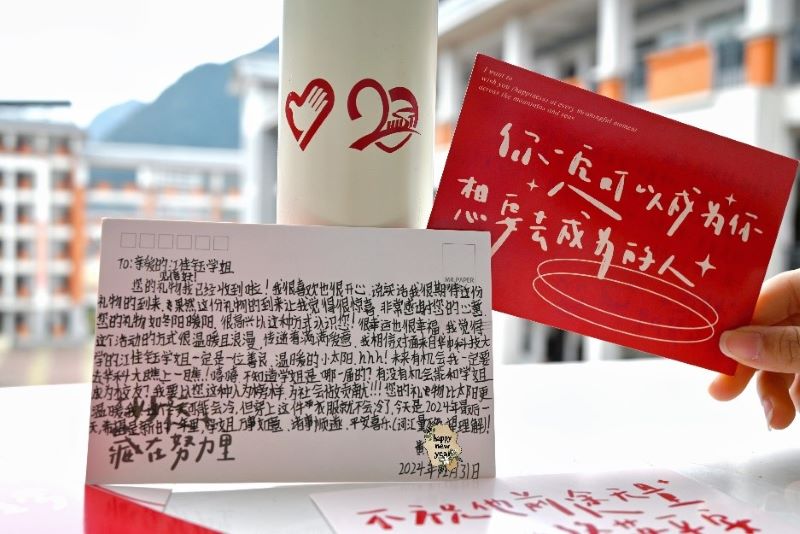 20
I want to
wish you happiness at every meaningful moment
across the mountains and seas
你一定可以成为你
想要去成为的人
MR.PAPER
TO:亲爱的江佳钰学姐
见信好!
您的礼物我已经收到啦!我很喜欢也很开心 说实话我很期待这份
礼物的到来,果然这份礼物的到来让我觉得很惊喜 非常感谢您的心意
您的礼物如冬阳暖阳,很高兴以这种方式认识您!很幸运也很幸福,我觉得
这个活动的方式很温暖且浪漫,传递着满满爱意,我相信对面来自华中科技大
学的江佳钰学姐一定是位善良、温暖的小太阳,hhh!未来有机会我一定要
去华科大瞧上一瞧!嘻嘻 不知道学姐是哪一届的?有没有机会能和学姐
成为校友?我要以您这种人为榜样 为社会做贡献!!!您的礼物比太阳更
温暖 可能会冷,但穿上这件衣服就不会冷了,今天是2024年最后一
天,希望在新的一年里,学姐 万事如意、诸事顺遂、平安喜乐(词汇量 理解)!
藏在努力里
happy
new
year
2024年12月31日